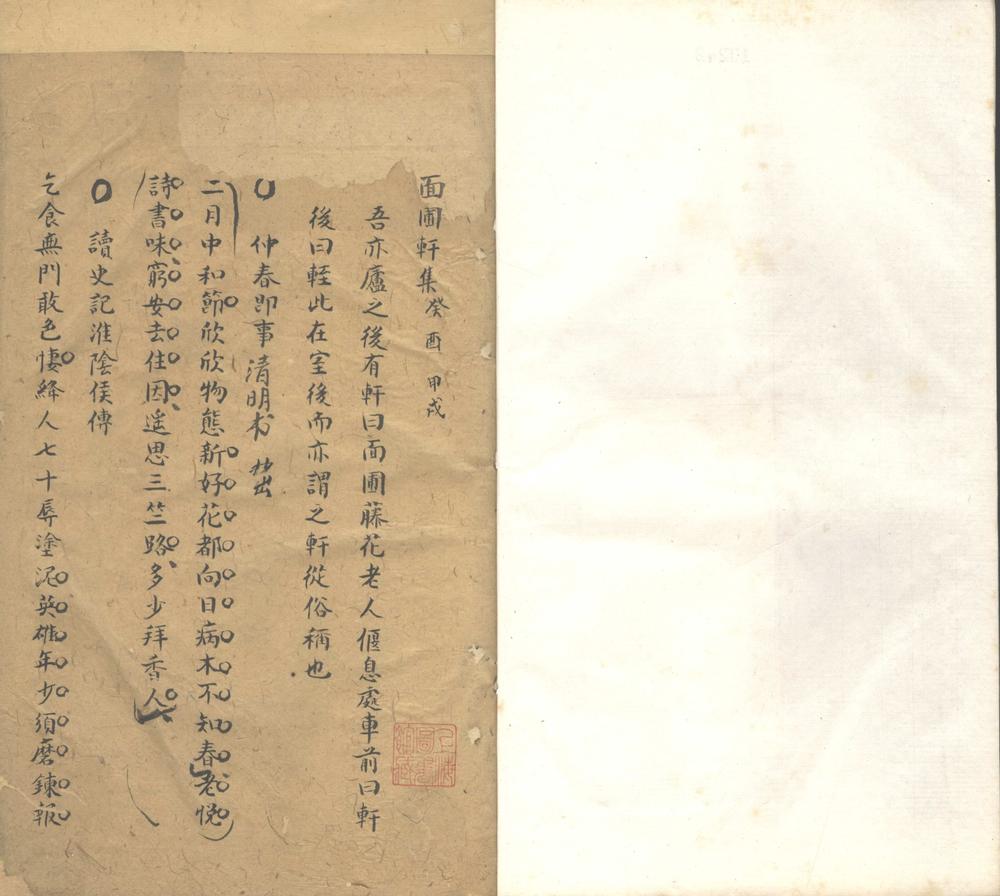 面圃軒集 癸酉 甲戌
吾亦廬之後有軒曰面圃藤花老人偃息處車前曰軒
後曰輊此在室後而亦謂之軒從俗稱也
仲春即事 清明前
二月中和節欣欣物態新好花都向日病木不知春老悅
詩書味窮安去住因遙思三竺路多少拜香人
讀史記淮陰侯傳
乞食無門敢色悽絳人七十辱塗泥英雄年少須磨鍊報